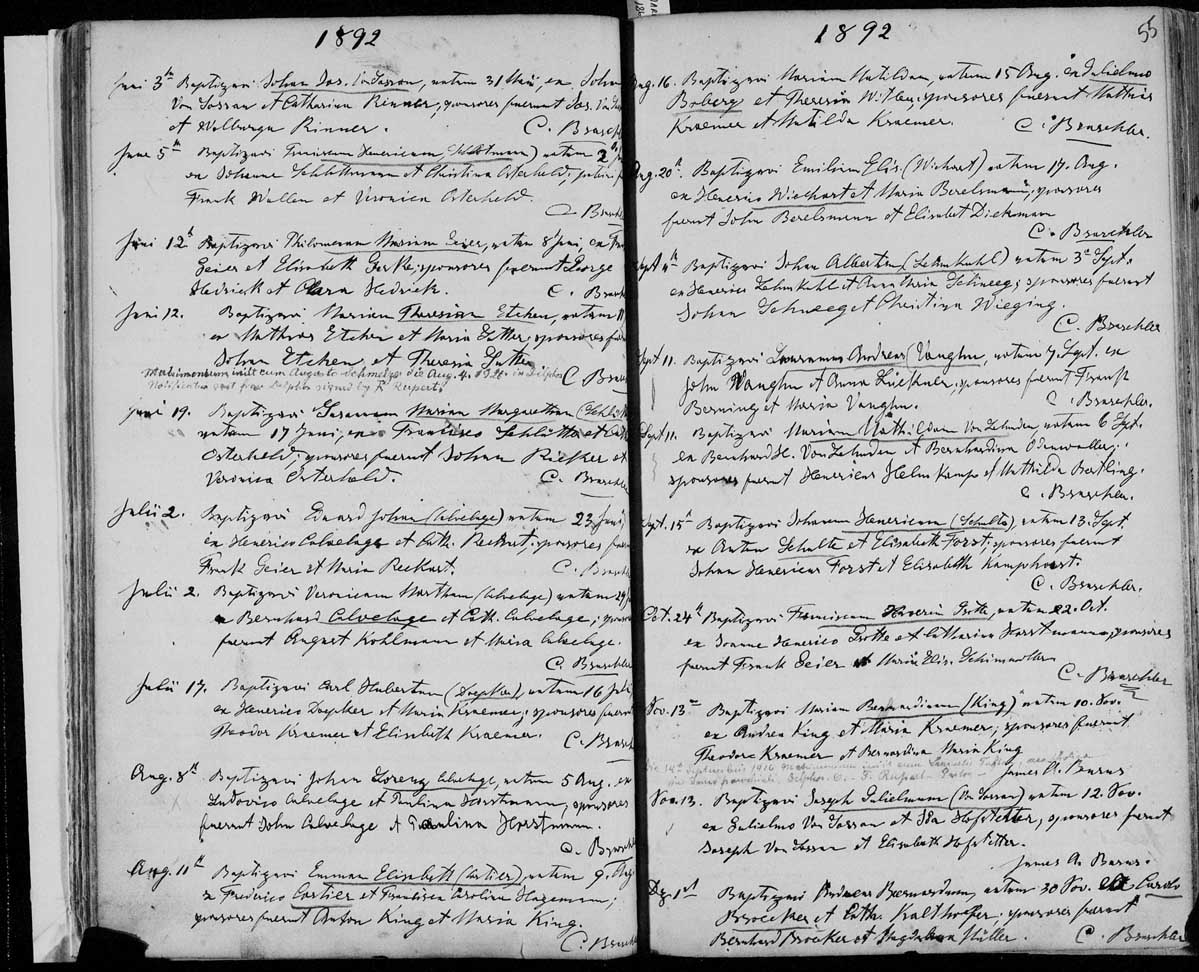 1892
Juni 3th Baptizavi Johan Jos. VonLossan, natum 31 Maii, ex Johan
Von Lossan et Catharina Rinner, sponsores fuerunt Jos.
et Walburga Rinner. C. Braschl
June 5th Baptizavi Franciscum Henericum, natum 2
ex Johanne et Christina Osterheld;
Frank Wallen et Veronica Osterheld.
C. Braschl
Juni 12th Baptizavi Philomenam Mariam Geier, natam 8 Juni, ex
Geier et Elisabeth Gerke; sponsores fuerunt George
Hedrick et Clara Hedrick. C. Brasch
Juni 12. Baptizavi Mariam Theresiam Etchen, natam 11
ex Mathias Etchen et Maria; sponsores fu
Johan Etchen et Theresia
Matrimonium init cum Augusto Schmelzer die Aug. 4. 1926. in Delphos
Notificatio rect from Delphos signed by F. Rupert. C. Bra
Juni 19. Baptizavi Susannam Mariam Margaretham (Schlött
natam 17 Juni, ex Francisco et
Osterheld; sponsores fuerunt Johan Rieker et
Veronica Osterheld. C. Braschler
Julii 2. Baptizavi Eduard Johan (Calvelage) natum 23 Juni,
ex Henerico Calvelage et Cath. Reckart; sponsores fuer
Frank Geier et Maria Reckart. C. Braschl
Julii 2. Baptizavi Veronicam Martham (Calvelage) natam 29
ex Bernhard Calvelage et Cath. Calvelage; spons
fuerunt August Kohlmann et Maria Calvelage.
C. Braschler
Julii 17. Baptizavi Carl Hubertum (Doepker), natum 16 Juli,
ex Henerico Doepker et Maria Kraemer; sponsores fuerunt
Theodor Kraemer et Elisabeth Kraemer. C. Brasch
Aug. 8th Baptizavi Johan Lorenz Calvelage, natum 5 Aug. ex
Ludovico Calvelage et Paulina Horstmann, sponsores
fuerunt John Calvelage et Paulina Horstmann.
C. Braschl
Aug. 11th Baptizavi Emmam Elisabeth (Cartier), natam 9. Aug.
ex Frederico Cartier et Francisca Carolina Hagemann;
sponsores fuerunt Anton King et Maria King.
C. Braschler
1892 55
Aug. 16. Baptizavi Mariam Matildam, natam 15 Aug. ex Gulielmo
Boberg et Theresia; sponsores fuerunt Mathias
Kraemer et Matilda Kraemer. C. Braschler.
Aug. 20th. Baptizavi Emiliam Elis. (Wichart) natam 17. Aug.
ex Henerico Wiechart et Maria Berelsmann, sponsores
fuerunt John Berelsmann et Elisabet Diekmann
C. Braschler
Sept 4th Baptizavi Johan Albertum (Lehmkuhl) natum 3d Sept.
ex Henerico Lehmkuhl et Anna Maria Schneeg; sponsores fuerunt
Johan Schneeg et Christina Wieging.
C. Braschler
Sept 11. Baptizavi Andreas (Vaughn, natum 7. Sept. ex
John Vaughn et Anna Lückner, sponsores fuerunt Frank
Berning et Maria Vaughn. C. Braschler.
Sept 11. Baptizavi Mariam Mathildam Von Lehmden, natam 6 Sept.
ex Bernhard H. Von Lehmden et Bernhardina Odenweller;
sponsores fuerunt Henericus Helmkamp et Mathilda Bertling.
C. Braschler.
Sept. 15th Baptizavi Johannem Henericum (Schulte), natum 13. Sept.
ex Anton Schulte et Elisabeth Forst; sponsores fuerunt
Johan Henericus Forst et Elisabeth Kamphorst.
C. Braschler.
Oct. 24th Baptizavi Franciscum Xaverii Grotte, natum 22. Oct.
ex Joanne Henerico Grotte et Catharina Horstmann, sponsores
fuerunt Frank Geier et Maria Elis. Schinmoller
C. Braschler
Nov. 13th Baptizavi Mariam Bernardinam (King) natam 10. Nov.
ex Andrea King et Maria Kraemer; sponsores fuerunt
Theodore Kraemer et Bernardina Maria King
Die 12th Septembris 1916 Matrimonium init cum
in Delphos, O. F. Rupert Pastor James A. Burns
Nov. 13. Baptizavi Joseph Gulielmum (Von Lossan) natum 12. Nov.
ex Gulielmo Von Lossan et Ida Hofstetter, sponsores fuerunt
Joseph Von Lossan et Elisabeth Hofstetter.
James A. Burns.
Dez. 1st Baptizavi Andreas Bernardum, natum 30 Nov. ex Carolo
Broecker et Cath. Kalthoefer; sponsores fuerunt
Bernhard Broeker et Magdalena Müller. C. Braschler